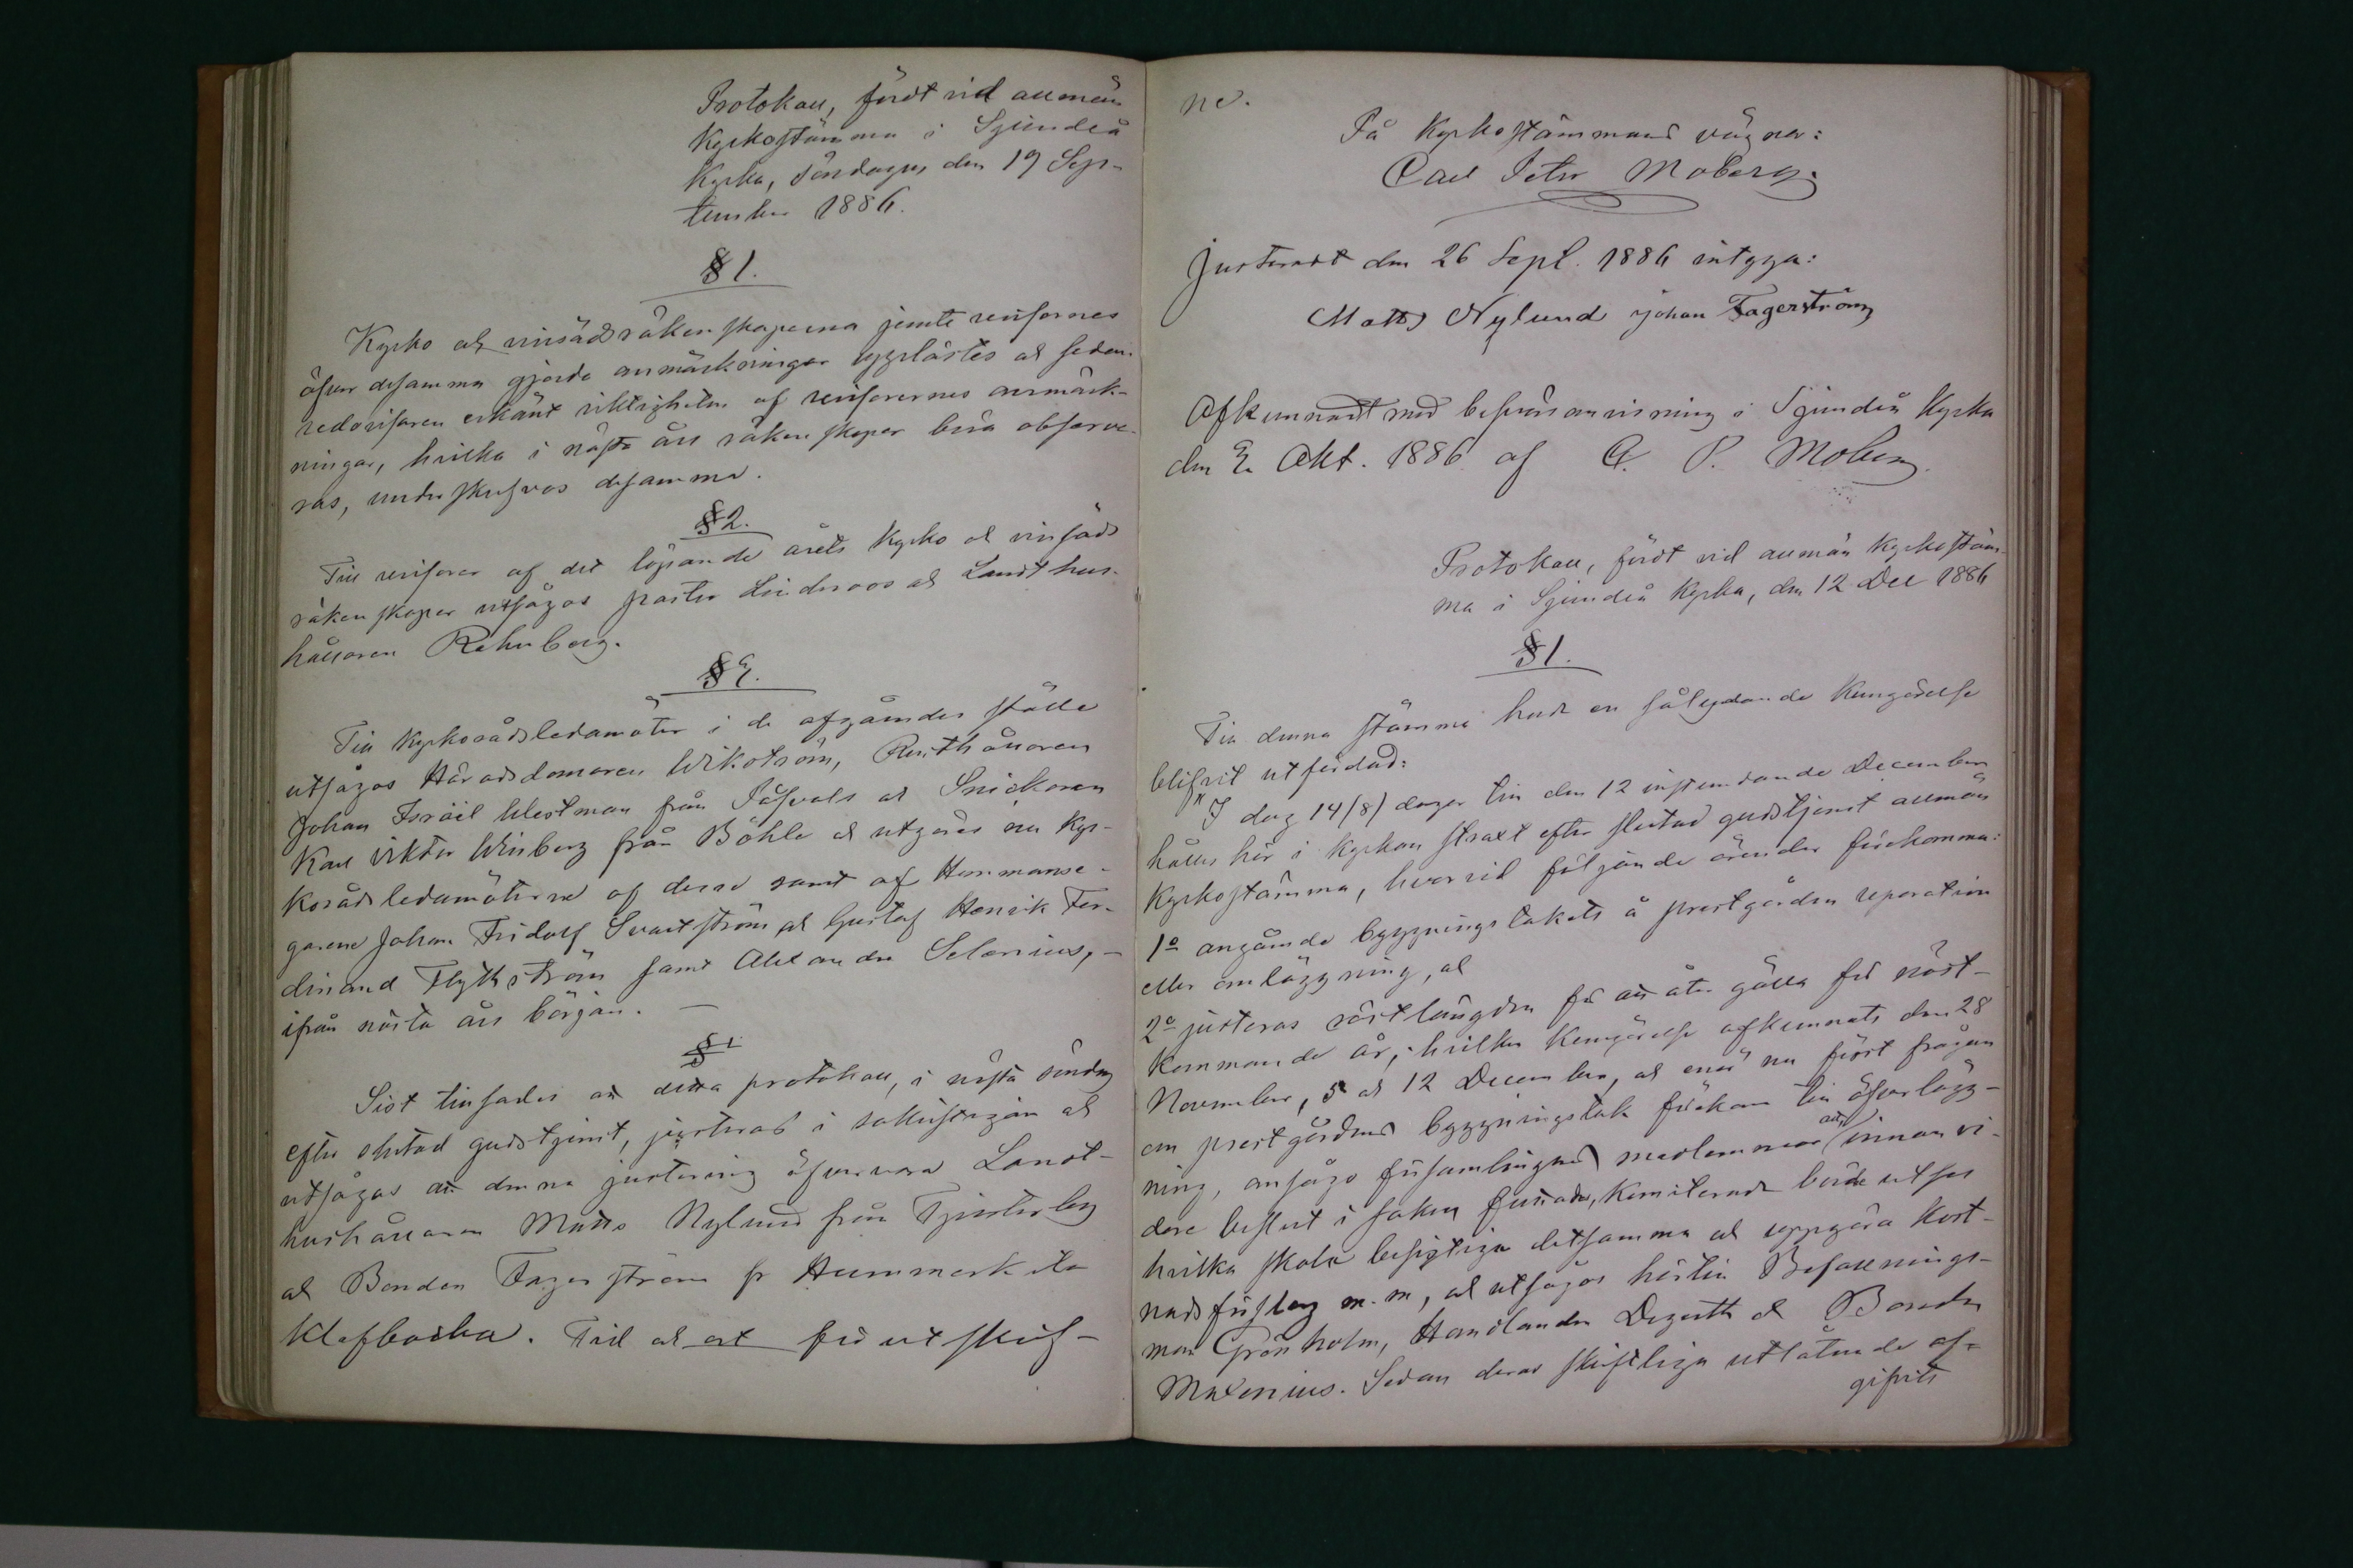 Protokoll, fördt vid allmän
Kyrkostämma i Sjundeå
Kyrka, söndagen den 19 Sep-
tember 1886.
§ 1.
Kyrko och vinsädsräkenskaperna jemte revisorernes
öfver desamma gjorda anmärkningar upplästes och sedan
redovisaren erkänt riktigheten af revisorernes anmärk-
ningar, hvilka i nästa års räkenskaper böra observe-
ras, underskrefvos desamma.
§ 2.
Till revisorer af det löpande årets kyrko och vinsäds
räkenskaper utsågos pastor Lindroos och Landthus-
hållaren Rehnberg.
§ 3.
Till Kyrkorådsledamöter i de afgångnes ställe
utsågos Häradsdomaren Wikström, Rusthållaren
Johan Israël Westman från Påfvals och Snickaren
Karl Viktor Winberg från Böhle och utgöres nu Kyr-
korådsledamöterne af desse samt af Hemmansä-
garene Johan Fridolf Svartström och Gustaf Henrik Fer-
dinand Flythström samt Alexander Selenius, -
ifrån nästa års början. -
§ 4.
Sist tillsades att detta protokoll, i nästa söndag
efter slutad gudstjenst, justeras i sakristigan och
utsågos att denna justering öfvervara Landt-
hushållaren Matts Nylund från Tjusterby
och Bonden Fagerström fr Hummerkila
Klefbacka. Tid och ort förutskrif-
ne.
På Kyrkostämmans vägnar:
Carl Peter Moberg.
Justeradt den 26 Sept. 1886 intyga:
Matts Nylund Johan Fagerström
Afkunnadt med besvärsanvisning i Sjundeå Kyrka
den 3 Okt. 1886 af C. P. Moberg.
Protokoll, fördt vid allmän Kyrkostäm-
ma i Sjundeå Kyrka, den 12 Dec 1886
§ 1.
Till denna stämma hade en sålydande Kungörelse
blifvit utfärdad:
"I dag 14 (8) dagar till den 12 instundande December
hålles här i kyrkan straxt efter slutad gudstjenst allmän
Kyrkostämma, hvarvid följande ärender förekomma:
1o angående byggningstakets å prestgården reparation
eller omläggning, och
2o justeras röstlängden för att åter gälla för näst-
kommande år, hvilken Kungörelse afkunnats den 28
November, 5 och 12 December, och enär nu först frågan
om prestgårdens byggningstak förekom till öfverlägg-
ning, ansågo församlingens medlemmar att innan vi-
dare beslut i saken funnades, Komiterade borde utses
hvilka skola besigtiga detsamma och uppgöra Kost-
nadsförslag m. m, och utsågos härtill Befallnings-
man Grönholm, Handlanden Degerth och Bonden
Malenius. Sedan deras skriftliga utlåtande af-
gifvits